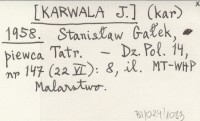 [KARWALA J.] (kar)
1958. Stanisław Gałek,
piewca Tatr. – Dz. Pol. 14,
nr 147 (22 VI): 8, il. MT-WHP
Malarstwo.